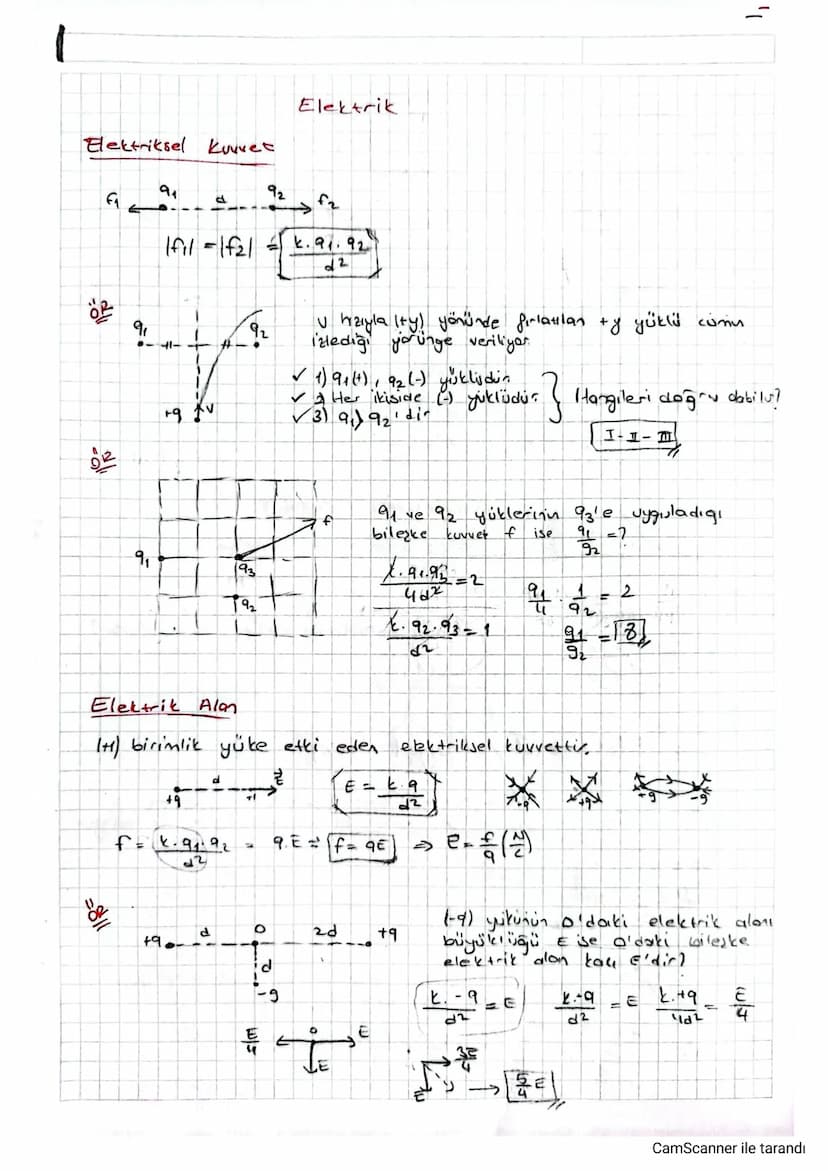 Elektrik
Elektriksel Kuvvet
f1 q1 d q2 f2
|f1| = |f2| = k.q1.q2 / d²
ÖR
q1 q2
+q v
v hızıyla (+y) yönünde fırlatılan +y yüklü cismin
izlediği yörünge veriliyor.
✓ 1) q1(+), q2(-) yüklüdür.
✓ 2) Her ikiside (-) yüklüdür.
✓ 3) q1>q2'dir
Hangileri doğru olabilir?
I - II - III
ÖR
f
q1 q3
q2
q1 ve q2 yüklerinin q3'e uyguladığı
bileşke kuvvet f ise q1/q2 = ?
k.q1.q3 / 4d² = 2
k.q2.q3 / d² = 1
q1/4 . 1/q2 = 2
q1/q2 = 8
Elektrik Alan
(+1) birimlik yüke etki eden elektriksel kuvvettir.
+q d +1 E
E = k.q / d²
-q +q +q -q
f = k.q1.q2 / d² = q.E = f = qE ⇒ E = f/q (N/C)
ÖR
+q d O 2d +q
d
-q
(-q) yükünün O'daki elektrik alanı
büyüklüğü E ise O'daki bileşke
elektrik alan kaç E'dir?
k.-q / d² = E k.+q / d² = E k.+q / 4d² = E/4
E/4 O E
E
3E/4
E
5/4 E
CamScanner ile tarandı